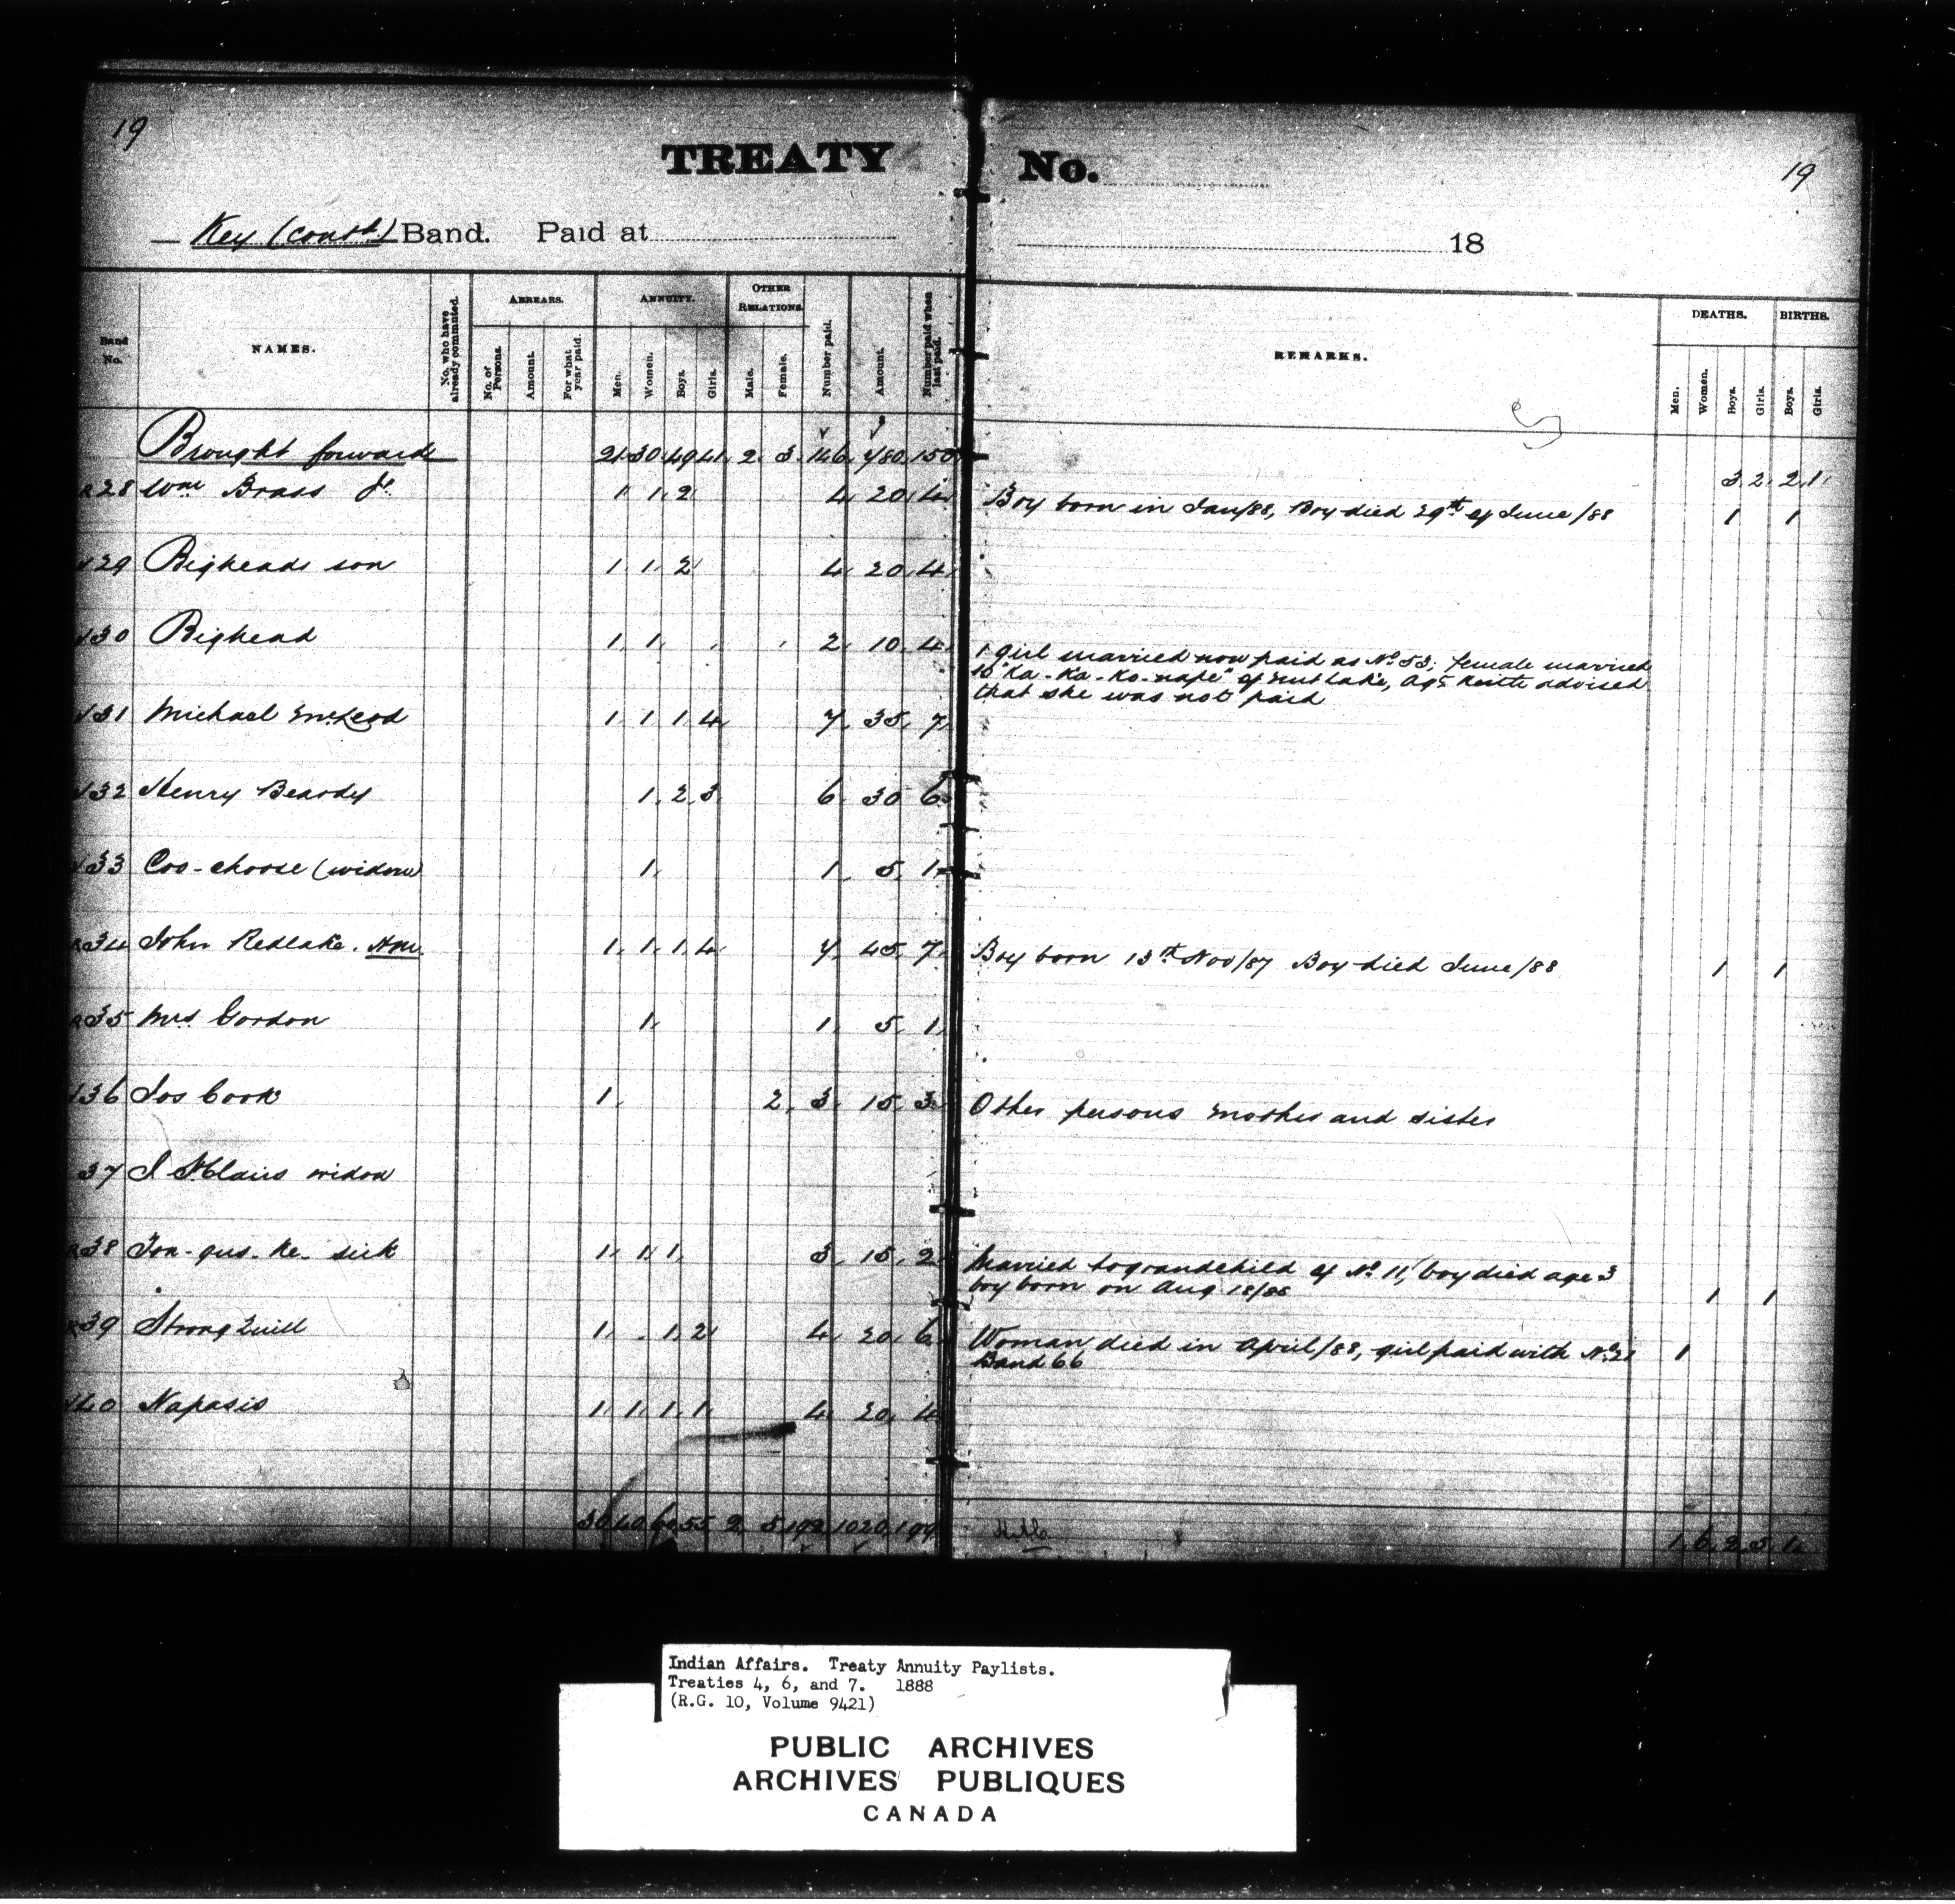 19
19
TREATY No.
Key (contd.) Band. Paid at
18
Band No.
NAMES.
No. who have already commuted.
ARREARS.
No. of Persons.
Amount.
For what year paid.
ANNUITY.
Men.
Women.
Boys.
Girls.
OTHER RELATIONS.
Male.
Female.
Number paid.
Amount.
Number paid when last paid.
REMARKS.
DEATHS.
Men.
Women.
Boys.
Girls.
BIRTHS.
Boys.
Girls.
Brought forward 21 30 49 41 2 3 146 780 150 3 2 2 1
28 Wm Brass Jr. 1 1 2 4 20 4 Boy born in Jan/88, Boy died 29th of June/88 1 1
29 Bigheads son 1 1 2 4 20 4
30 Bighead 1 1 2 10 4 1 girl married now paid as No 53; female married
to "Ka-Ka-Ko-nape" of Nut lake, Agt Keith advised
that she was not paid
31 Michael McLeod 1 1 1 4 7 35 7
32 Henry Beardy 1 2 3 6 30 6
33 Coo-choose (widow) 1 1 5 1
34 John Redlake. Hm. 1 1 1 4 7 45 7 Boy born 13th Nov/87 Boy died June/88 1 1
35 Mrs Gordon 1 1 5 1
36 Jos Cook 1 2 3 15 3 Other persons mother and sister
37 J StClairs widow
38 Ton-gus-Ke-sick 1 1 1 3 15 2 Married to grandchild of No 11, boy died age 3
boy born on Aug 18/88 1 1
39 Strong Quill 1 1 2 4 20 6 Woman died in April/88, girl paid with No 21
Band 66 1
40 Napasis 1 1 1 1 4 20 4
30 40 60 55 2 5 192 1020 199 1 6 2 5 1
Indian Affairs. Treaty Annuity Paylists.
Treaties 4, 6, and 7. 1888
(R.G. 10, Volume 9421)
PUBLIC ARCHIVES
ARCHIVES PUBLIQUES
CANADA